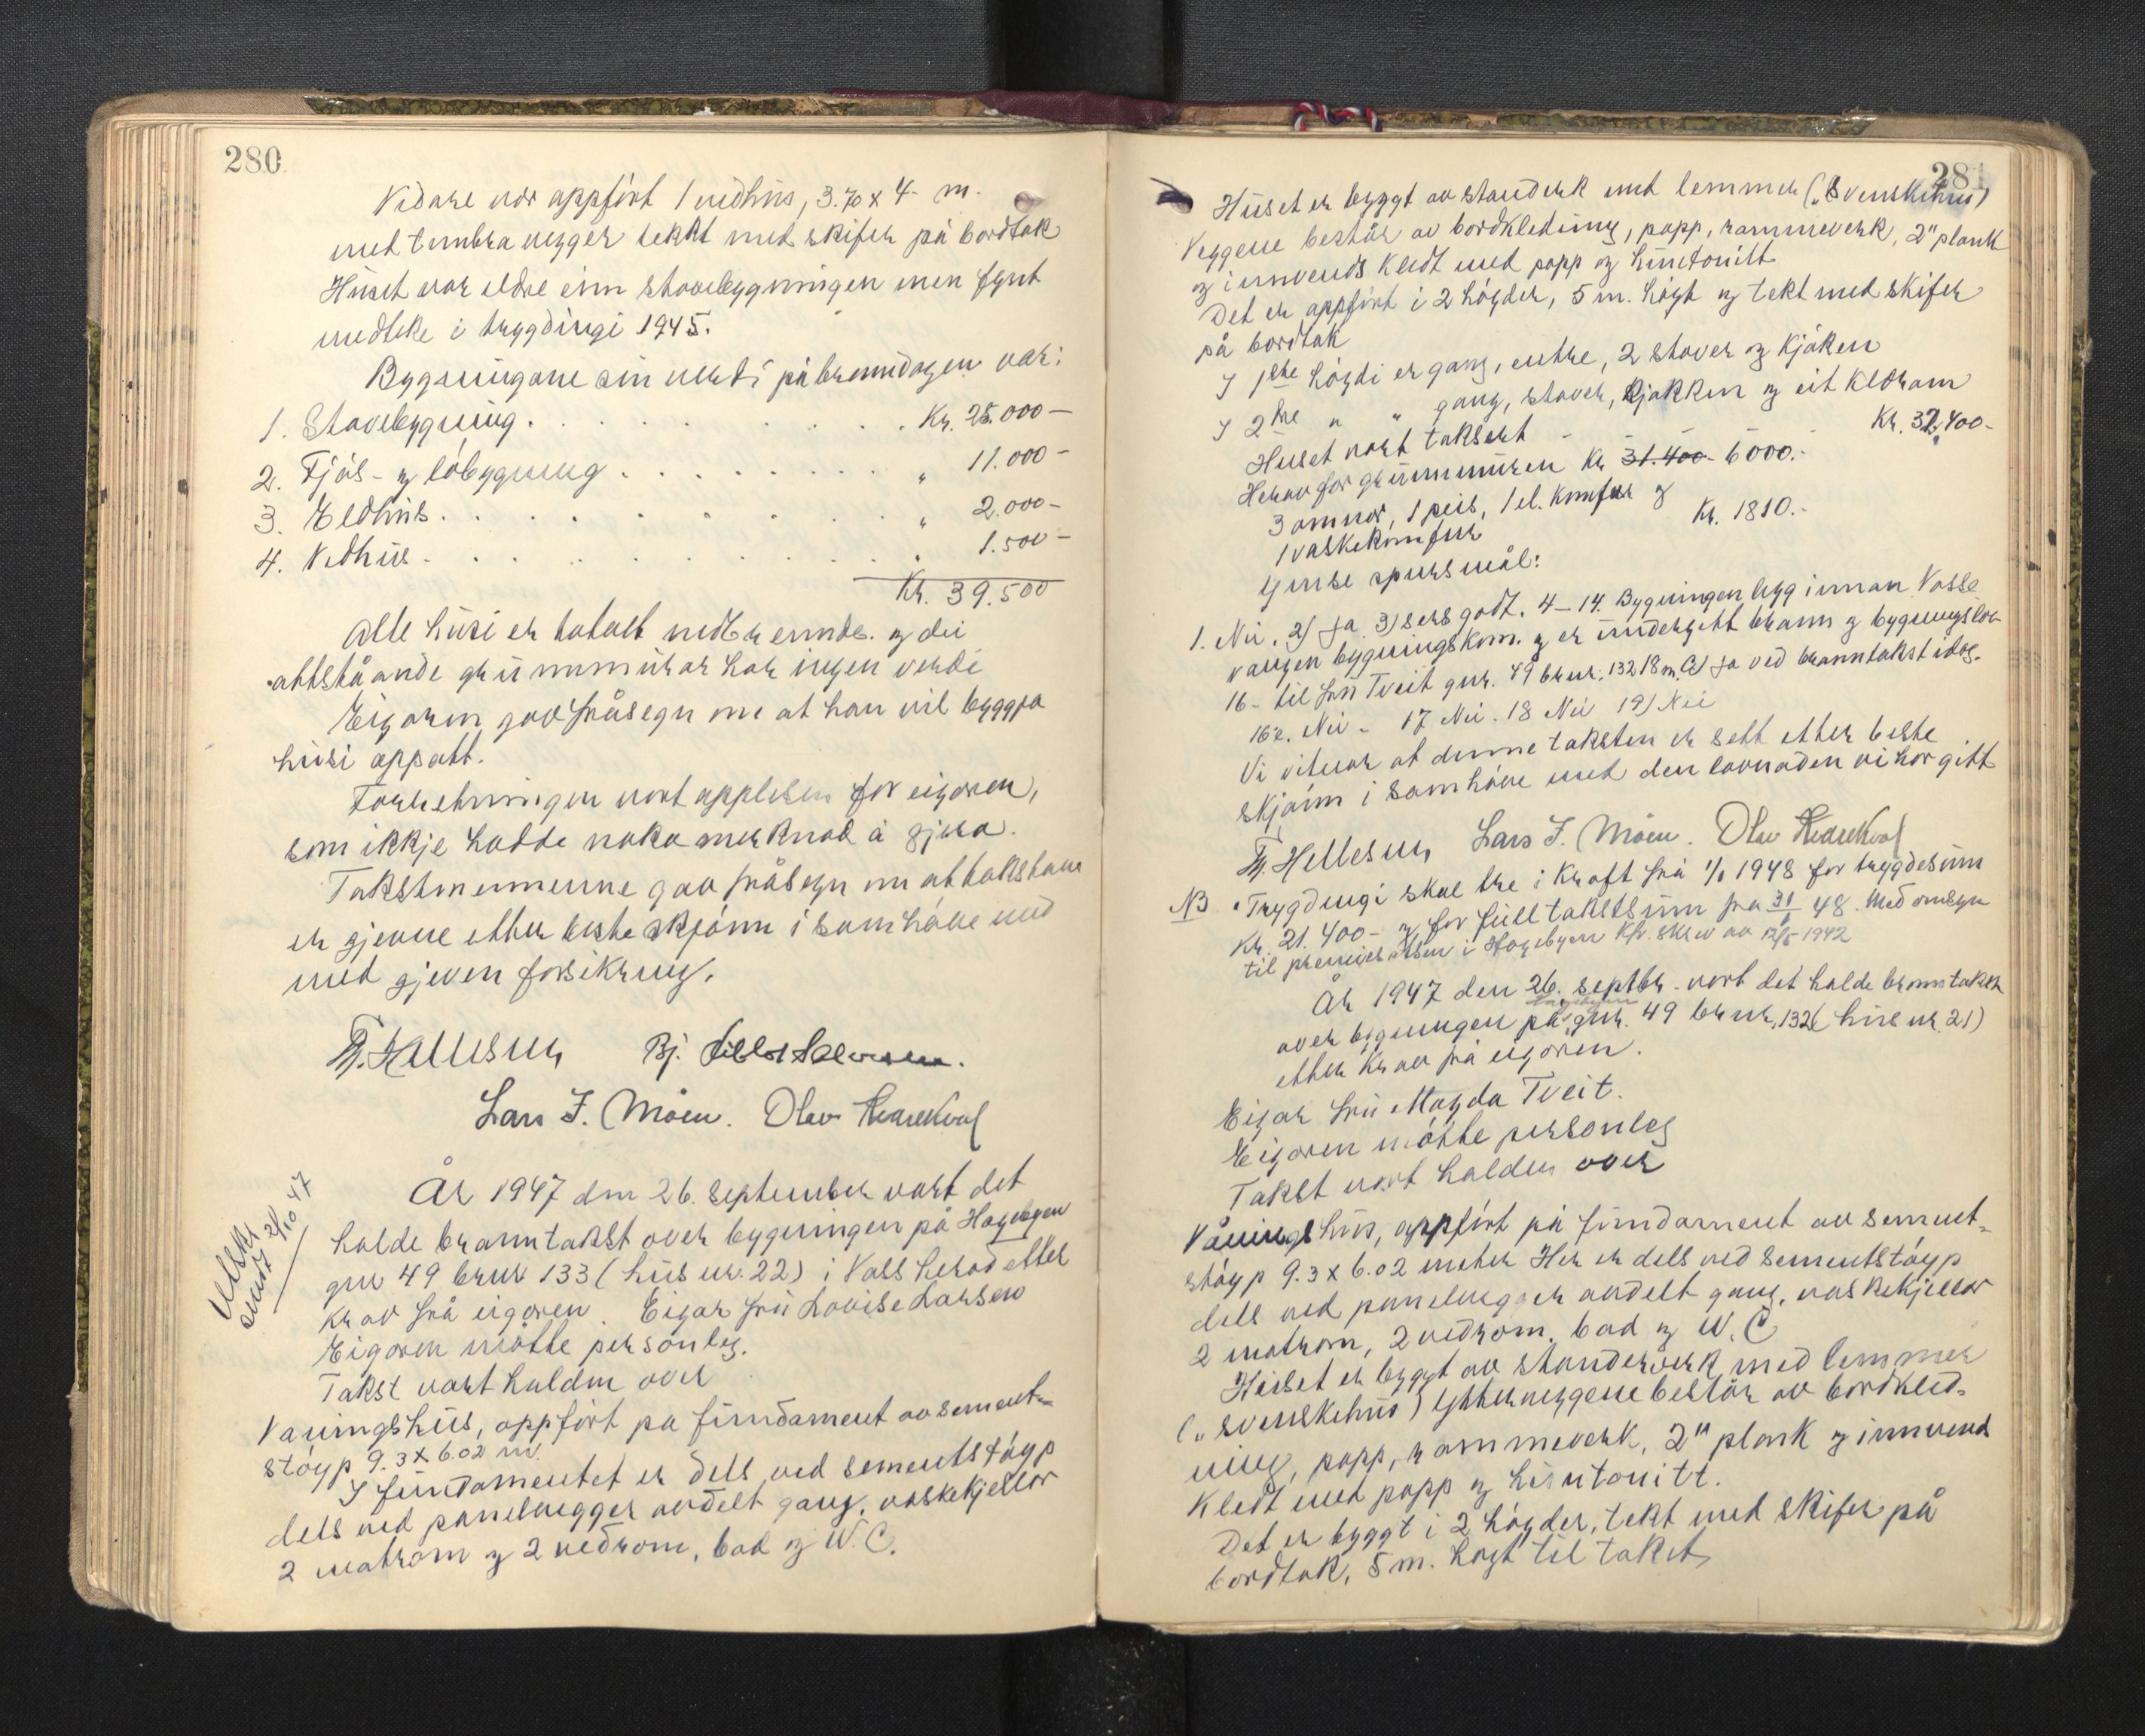 280
Vidare var oppført 1 vedhus, 3.70 x 4 m.
med timbra vegger tekkt med skifer på bordtak
Huset var eldre enn stovebygningen men fyrst
medteke i trygdingi 1945.
Bygningane sin verdi på branndagen var:
1. Stovebygning . . . . . Kr. 25.000 —
2. Fjøs- og løbygning . . . . . " 11.000 —
3. Eldhus . . . . . " 2.000 —
4. Vedhus . . . . . " 1.500 —
Kr. 39.500
Alle husi er totalt nedbrennde. og dei
attståande grunnmurar har ingen verdi
Eigaren gav fråsegn om at han vil byggja
husi oppatt.
Forretningen vart opplesen for eigaren,
som ikkje hadde noko merknad å gjera.
Takstmennerne gav fråsegn om at takstane
er gjevne etter beste skjønn i samhøve med
med gjeven forsikring.
T. Hellesen Bj.
Lars I. Møen. Olav Rearekval
Utskr. sendt 21/10 47
År 1947 den 26. september vart det
halde branntakst over bygningen på Hagebyen
gnr 49 brnr 133 (hus nr. 22) i Voss herad etter
krav frå eigaren. Eigar fru Lovise Larsen
Eigaren møtte personleg.
Takst vart halden over
Vaningshus, oppført på fundament av sement-
støyp 9.3 x 6.02 m.
I fundamentet er dels ved sementstøyp
dels ved panelvegger avdelt gang, vaskekjellar
2 matrom og 2 vedrom, bad og W.C.
281
Huset er byggt av standerk med lemmer („Svenskehus)
Veggene består av bordkledning, papp, rammeverk, 2" plank
og innvends kledt med papp og huntonitt
Det er oppført i 2 høgder, 5 m. høgt og tekt med skifer
på bordtak
I 1ste høgdi er gang, entre, 2 stover og kjøken
I 2dre " " gang, stover, kjøkken og eit kledrom
Huset vart taksert - - - Kr. 32.400-
Herav for grunnmuren Kr 31.400 6000.-
3 omnar, 1 peis, 1 el. komfur og
1 vaskekomfur Kr. 1810.-
Ymse spursmål:
1. Nei. 2) Ja 3) sers godt. 4-14. Bygningen ligg innan Vosse
vangen bygningskom. og er undergitt brann og bygningslov
16- til fru Tveit gnr. 49 brnr. 132 18 m. Ja ved branntakst idag.
16e. Nei - 17 Nei. 18 Nei 19) Nei
Vi vitnar at denne taksten er sett etter beste
skjønn i samhøve med den lovnaden vi har gitt
T. Hellesen Lars I. Møen. Olav Rearekval
NB Trygdingi skal tre i kraft frå 1/1 1948 for trygdesum
Kr. 21.400- og for full takstsum fra 31/1 48. Med omsyn
til premiesatsen i Hagebyen Kfr. skriv av 12/5 1942
År 1947 den 26. septbr. vart det halde branntakst
over bygningen på Hagebyen gnr. 49 brnr. 132 (hus nr. 21)
etter krav frå eigaren.
Eigar fru Magda Tveit.
Eigaren møtte personleg
Takst vart halden over
Våningshus, oppført på fundament av sement-
støyp 9.3 x 6.02 meter Her er dels ved sementstøyp
dels ved panelvegger avdelt gang, vaskekjellar
2 matrom, 2 vedrom, bad og W.C
Huset er bygt av standerverk med lemmer
(„svenskehus) Ytterveggene består av bordkled-
ning, papp, rammeverk, 2" plank og innvend
kledt med papp og huntonitt.
Det er byggt i 2 høgder, tekt med skifer på
bordtak, 5 m. høgt til taket